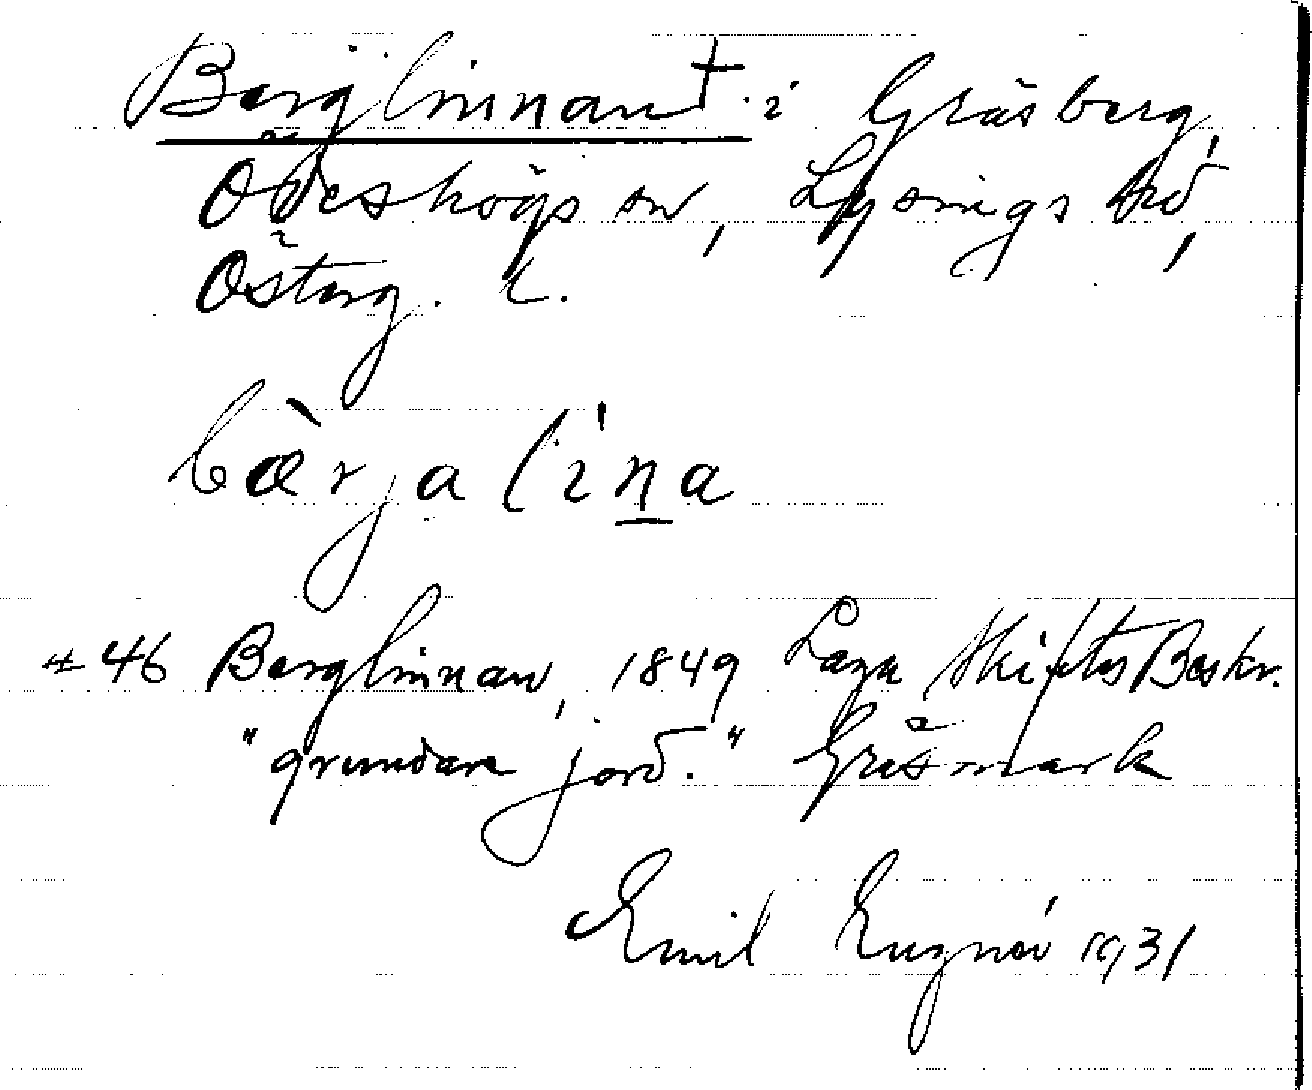 Berglinnan † i Gräsberg,
Ödeshögs sn, Lysings hd,
Österg. L.
bærjalina
46 Berglinnan, 1849 Laga Skiftes Beskr.
"grundare jord." Gräsmark
Emil 1931